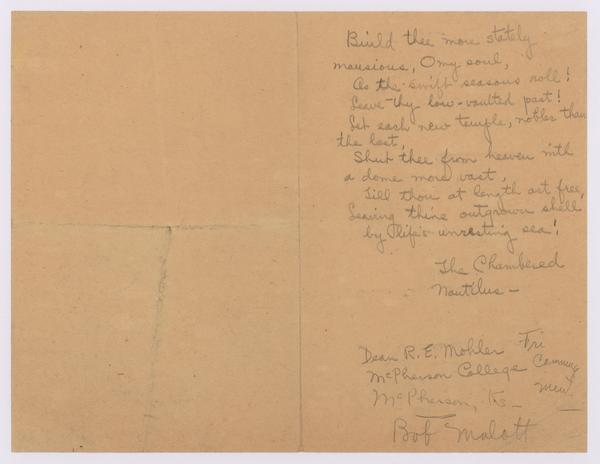 Build thee more stately
mansions, O my soul,
As the swift seasons roll!
Leave thy low-vaulted past!
Let each new temple, nobler than
the last,
Shut thee from heaven with
a dome more vast,
Till thou at length art free,
Leaving thine outgrown shell
by life's unresting sea!
The Chambered
Nautilus —
Dean R. E. Mohler
McPherson College
McPherson, Ks —
Bob Malott
Fri